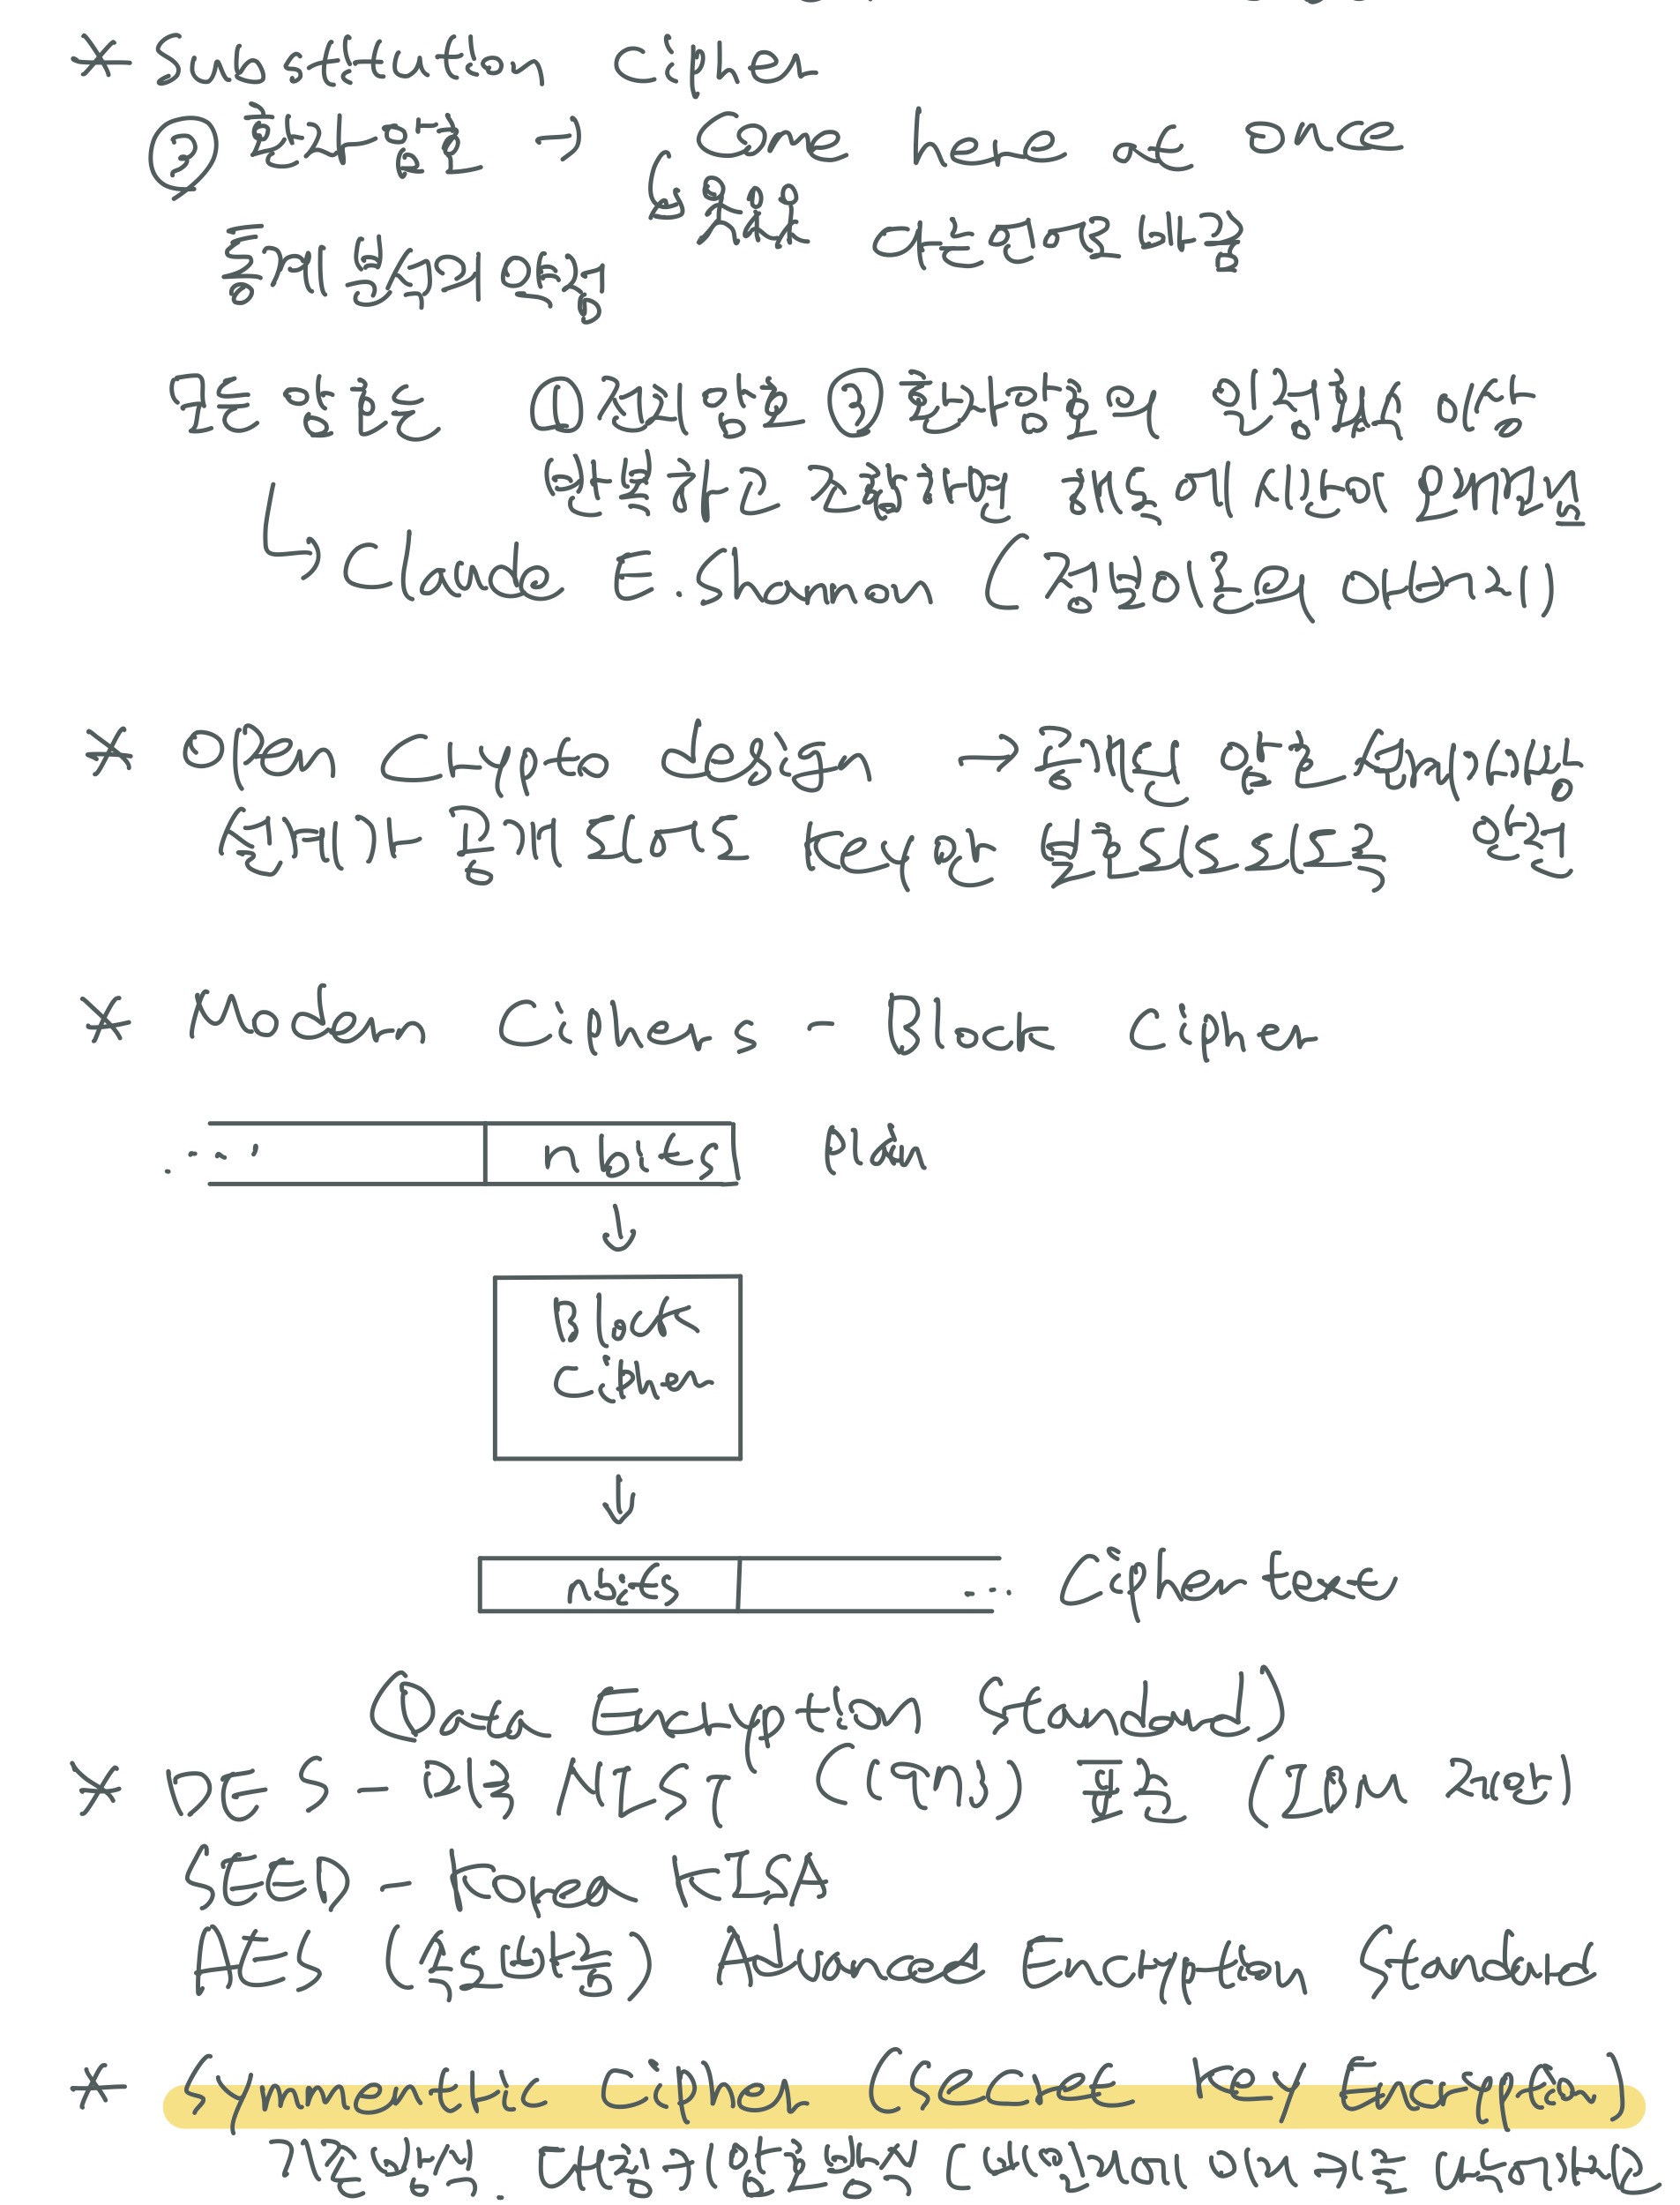 * Substitution Cipher
② 환자암호 → Come here at once
↳ 혹은
다른 언어로 바꿈
통계 분석의 약점
모든 암호는 ①전치암호 ②환자암호의 안정함수 이상
반복하고 조합하면 해독에 시간이 오래걸림
↳ Claude E. Shannon (정보이론의 아버지)
* Open Crypto design → 공개된 암호 설계방법
설계가 공개되어도 key만 보호되도록 안전
* Modern Ciphers - Block Cipher
... n bits plain
↓
Block
Cipher
↓
n bits ... Cipher text
(Data Encryption Standard)
* DES - 미국 NIST (1973) 표준 (IBM 제안)
SEED - Korea KISA
AES (속도빠름) Advanced Encryption Standard
* Symmetric Cipher (Secret Key Encryption)
기존방법. 대칭키암호방식 (비밀리에 이미 키를 나누어가짐